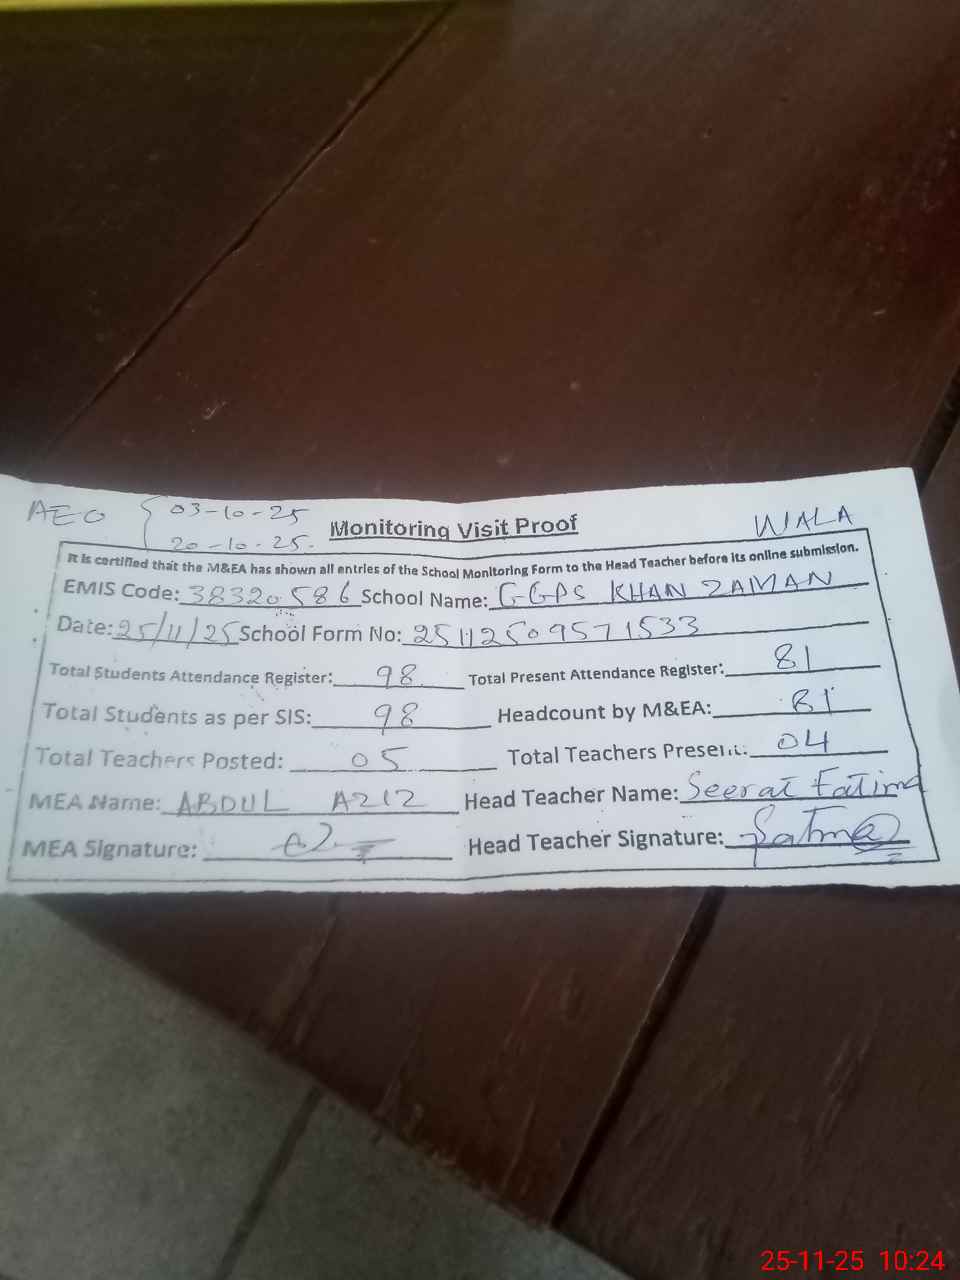 AEO { 03-10-25
20-10-25.
Monitoring Visit Proof
WALA
It is certified that the M&EA has shown all entries of the School Monitoring Form to the Head Teacher before its online submission.
EMIS Code: 38320586 School Name: GGPS KHAN ZAMAN
Date: 25/11/25 School Form No: 25112509571533
Total Students Attendance Register: 98 Total Present Attendance Register: 81
Total Students as per SIS: 98 Headcount by M&EA: 81
Total Teachers Posted: 05 Total Teachers Present: 04
MEA Name: ABDUL AZIZ Head Teacher Name: Seerat Fatima
MEA Signature: Head Teacher Signature: Fatima
25-11-25 10:24